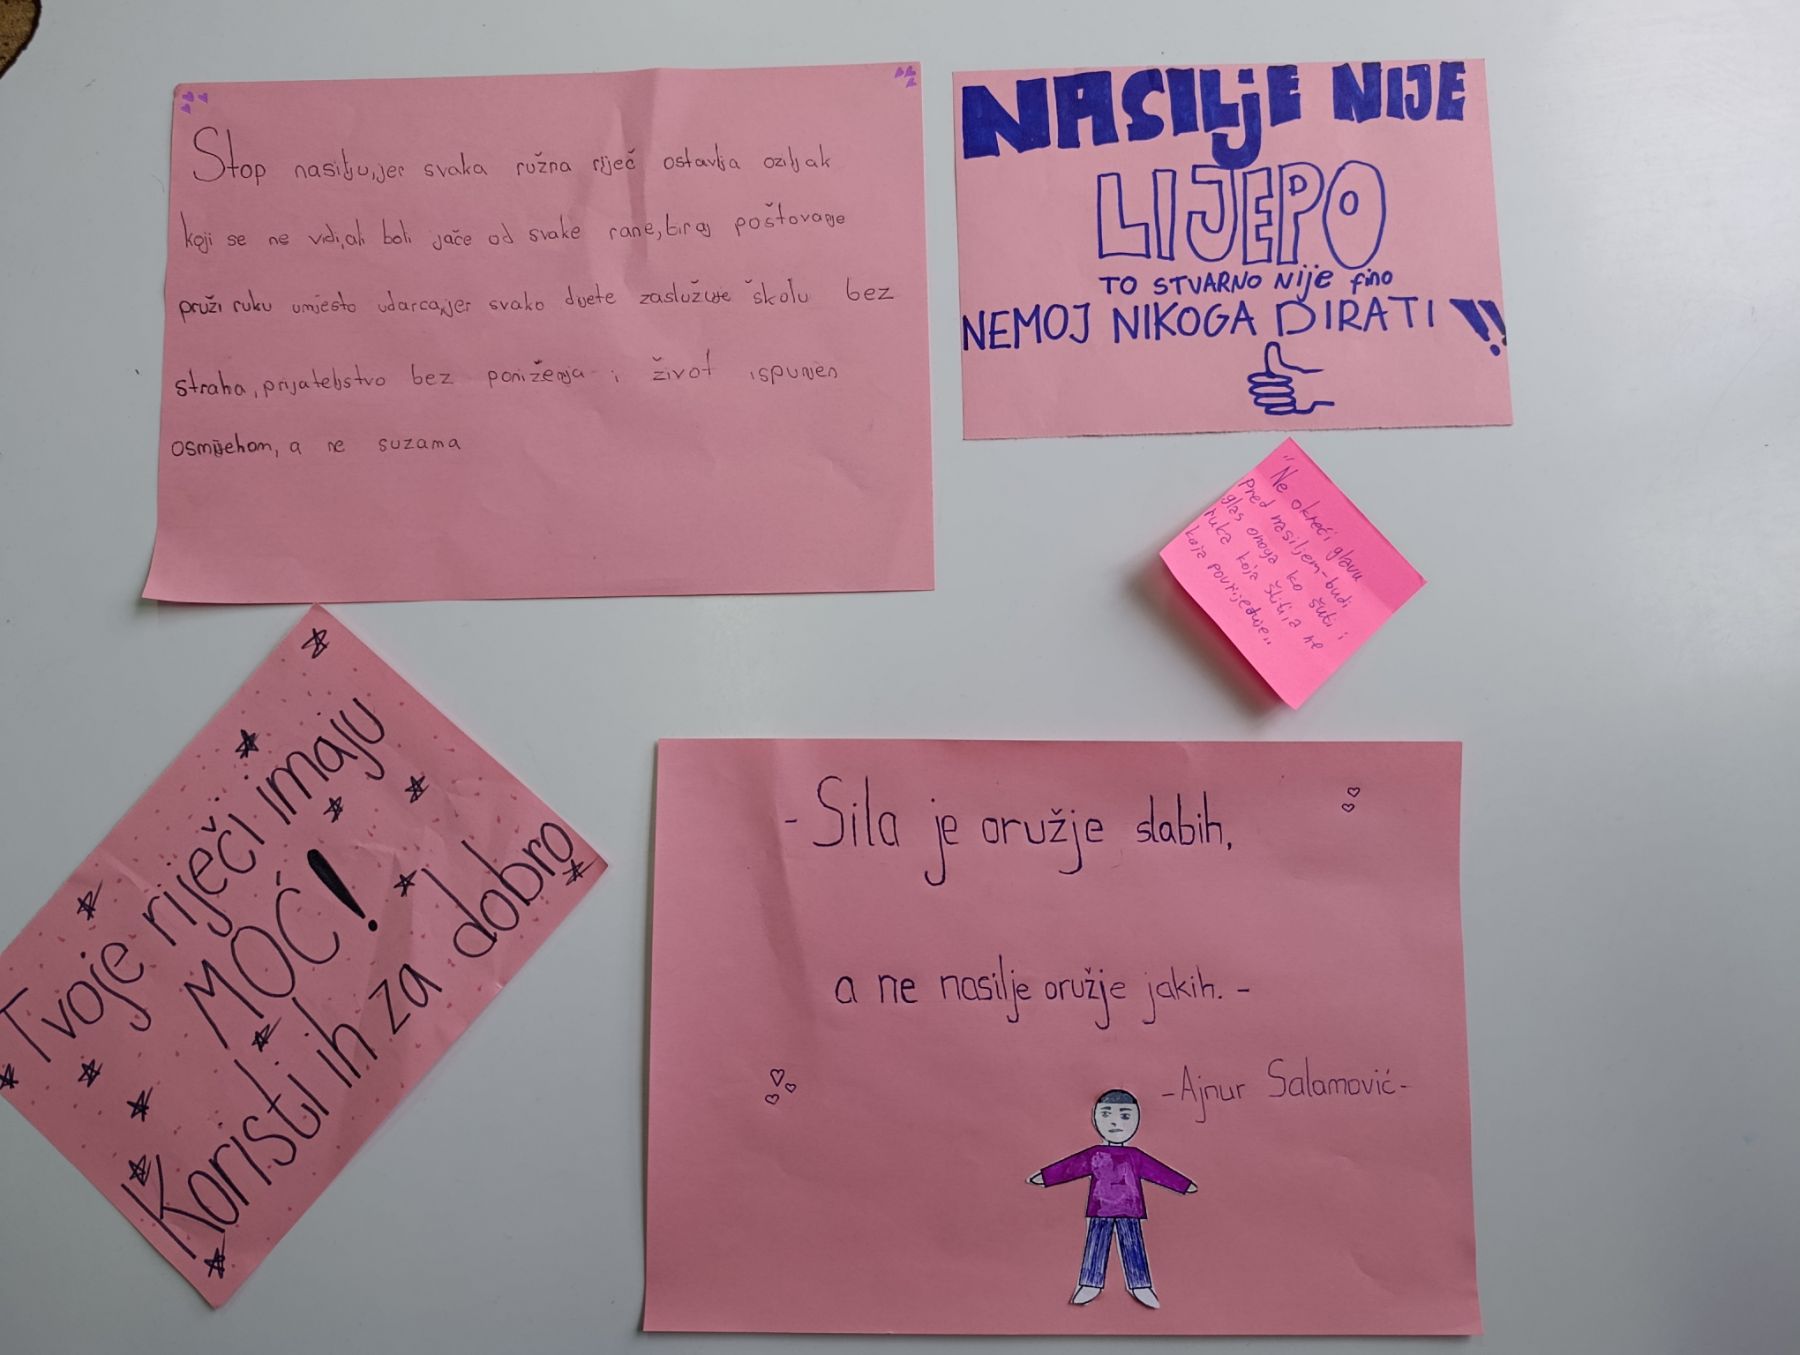 Stop nasilju,jer svaka ružna riječ ostavlja ožiljak
koji se ne vidi,ali boli jače od svake rane,biraj poštovanje
pruži ruku umjesto udarca,jer svako dijete zaslužuje školu bez
straha, prijateljstvo bez poniženja i život ispunjen
osmijehom, a ne suzama
NASILjE NIJE
LIJEPO
TO STVARNO Nije fino
NEMOJ NIKOGA DIRATI !!
"Ne okreći glavu
pred nasiljem-budi
glas onoga ko šuti i
ruka koja štiti,a ne
koja povrijeđuje"
Tvoje riječi imaju
MOĆ!
Koristi ih za dobro
-Sila je oružje slabih,
a ne nasilje oružje jakih.-
-Ajnur Salamović-